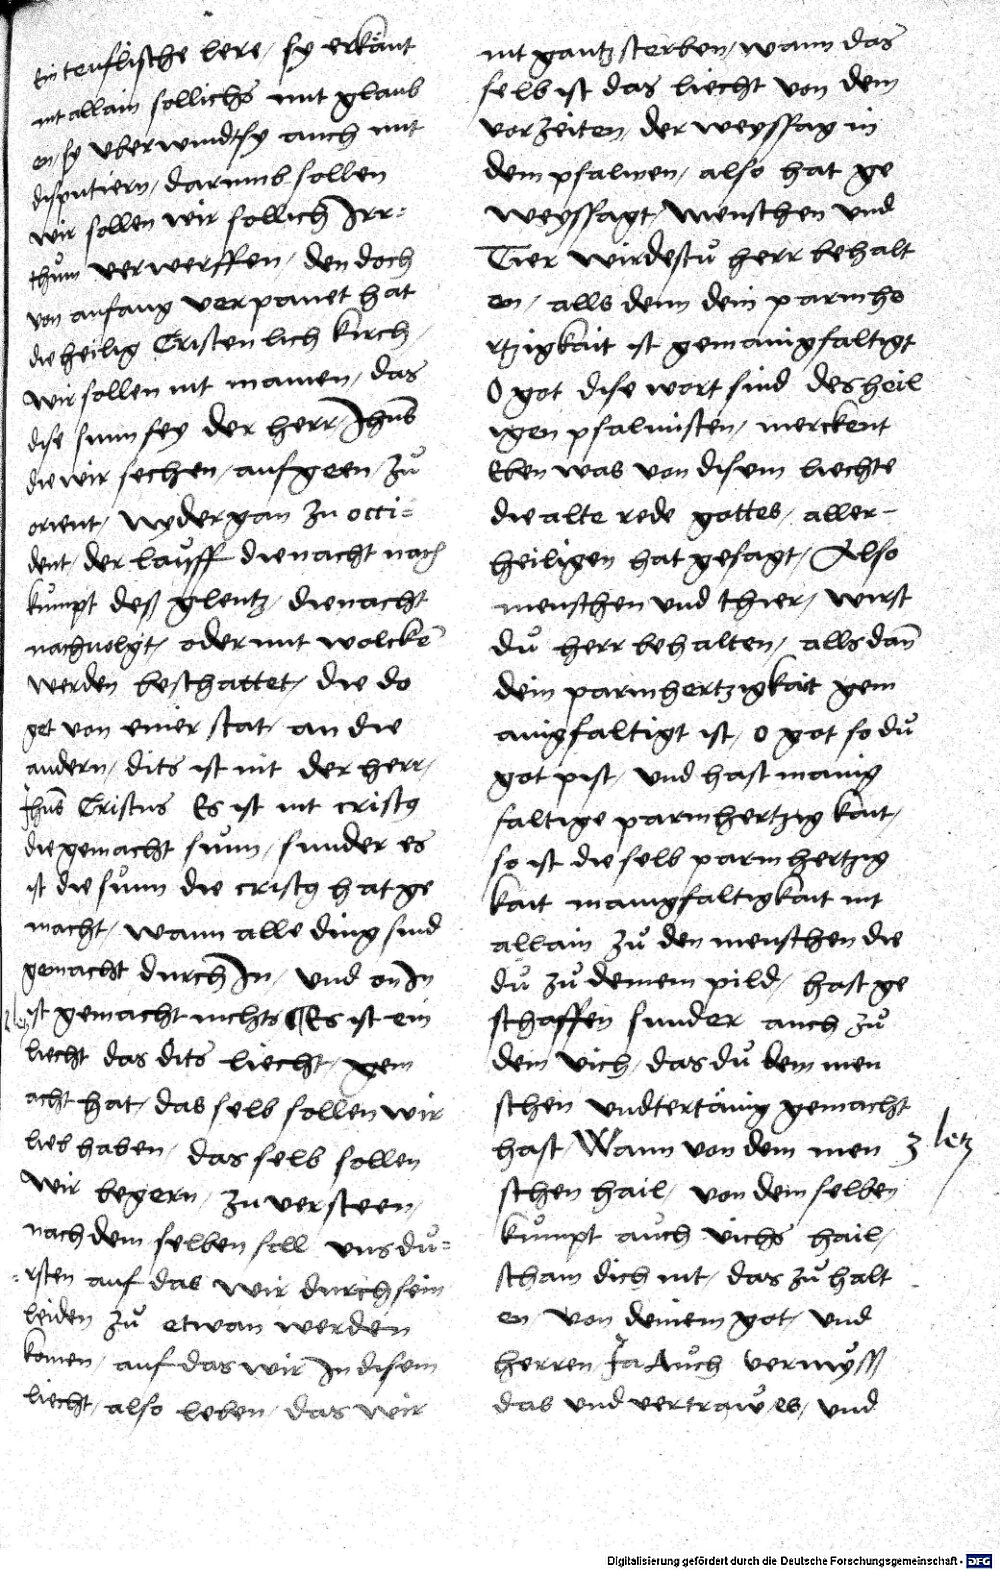 ein teuflische lere / sy erkänt
nit allain sollichs mit glaub
en / sy vberwindt sy auch mit
disputiern / darumb sollen
wir sollen wir sollich Irr=
thům verwerffen / den doch
von anfang verpanet hat
die heilig Cristenlich kirch /
wir sollen nit mainen / das
dise sunn sey der herr Jhūs
die wir sechen / aufgeen / zů
orient / Nydergan zu occi=
dent / der lauff die nacht nach
kumpt deß glentz / die nacht
nachuolgt / oder mit wolckē
werden beschattet / die do
get von einer stat / an die
andern / dits ist nit der herr /
Jhūs Cristus Es ist nit cristꝰ
die gemacht sunn / sunder es
ist die sunn die cristꝰ hat ge
macht / wann alle ding sind
gemacht durch In / vnd on In
ist gemacht nichts ¶ Es ist ein
liecht das dits liecht / gem
acht hat / das selb sollen wir
lieb haben / das selb sollen
wir begern / zu versteen /
nach dem selben soll vns dů=
=rsten auf das wir durch sein
leiden zů etwan werden
komen / auf das wir In disem
liecht / also leben / das wir
nit gantz sterben / wann das
selb ist das liecht von dem
vorzeiten / der weyssag in
dem psalmen / also hat ge
weyssagt / Menschen vnd
Tier wirdestů herr behalt
en / alls denn dein parmhe
rtzigkait ist gemanigfaltigt
O got dise wort sind des heil
igen psalmisten / merckent
Eben was von disem liechte
die alte rede gottes / aller-
heiligen hat gesagt / Also
menschen vnd thier / wirst
dů herr behalten / alls dañ
dein parmhertzigkait gem
anigfaltigt ist / o got so dů
got pist / vnd hast manig
faltige parmhertzig kait /
so ist die selb parmhertzig
kait manigfaltigkait nit
allain zů den menschen die
dů zů deinem pild / hast ge
schaffen sunder auch zů
dem vich / das dů dem men
schen vndtertänig gemacht
hast / Wann von dem men
schen hail / von dem selben
kumpt auch vichs hail /
scham dich nit / das zů halt
en / von deinem got / vnd
herren Ja Auch vermyß
das vnd vertraw / es / vnd
3 letz
Digitalisierung gefördert durch die Deutsche Forschungsgemeinschaft - DFG